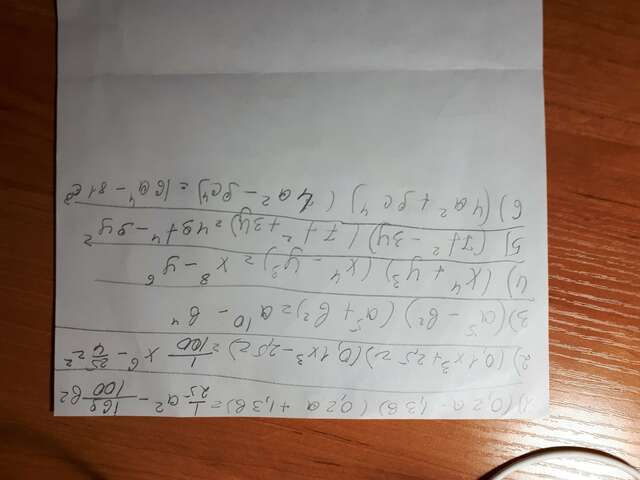 1) (0,2 a - 1,3 в) (0,2 a + 1,3 в) = 1/25 a² - 169/100 в²
2) (0,1x³ + 2,5 z) (0,1x³ - 2,5 z) = 1/100 x⁶ - 25/4 z²
3) (a⁵ - в²) (a⁵ + в²) = a¹⁰ - в⁴
4) (x⁴ + y³) (x⁴ - y³) = x⁸ - y⁶
5) (7t² - 3y) (7t² + 3y) = 49t⁴ - 9y²
6) (4a² + 9c⁴) (4a² - 9c⁴) = 16a⁴ - 81c⁸